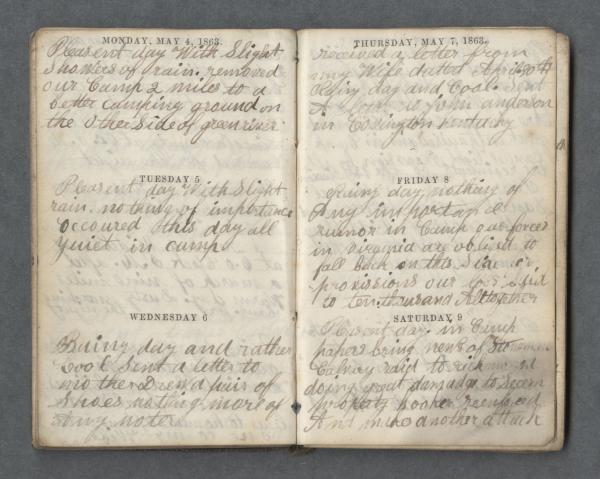 MONDAY, MAY 4, 1863.
Pleasent day With Slight
Showers of rain. removed
our Camp 2 miles to a
better camping ground on
the Other Side of green river
TUESDAY 5
Pleasent day With Slight
rain. nothing of importance
Occoured this day all
quiet in camp
WEDNESDAY 6
Rainy day and rather
Cool Sent a letter to
mother Drew d pair of
Shoes nothing more of
Any note
THURSDAY, MAY 7, 1863.
received a letter from
my Wife dated April 30th
Rainy day and Cool. Sent
A to John anderson
in Covington Kentucky
FRIDAY 8
Rainy day nothing of
Any importance
rumor in Camp our forces
in virginia are obliged to
fall back on this Side for
provisions our loss Said
to ten thousand Altogether
SATURDAY, 9
Plesent day. in Camp
papers bring news of Stoneman
Calvary raid to
doing great damage to
property hooker
And make another attack